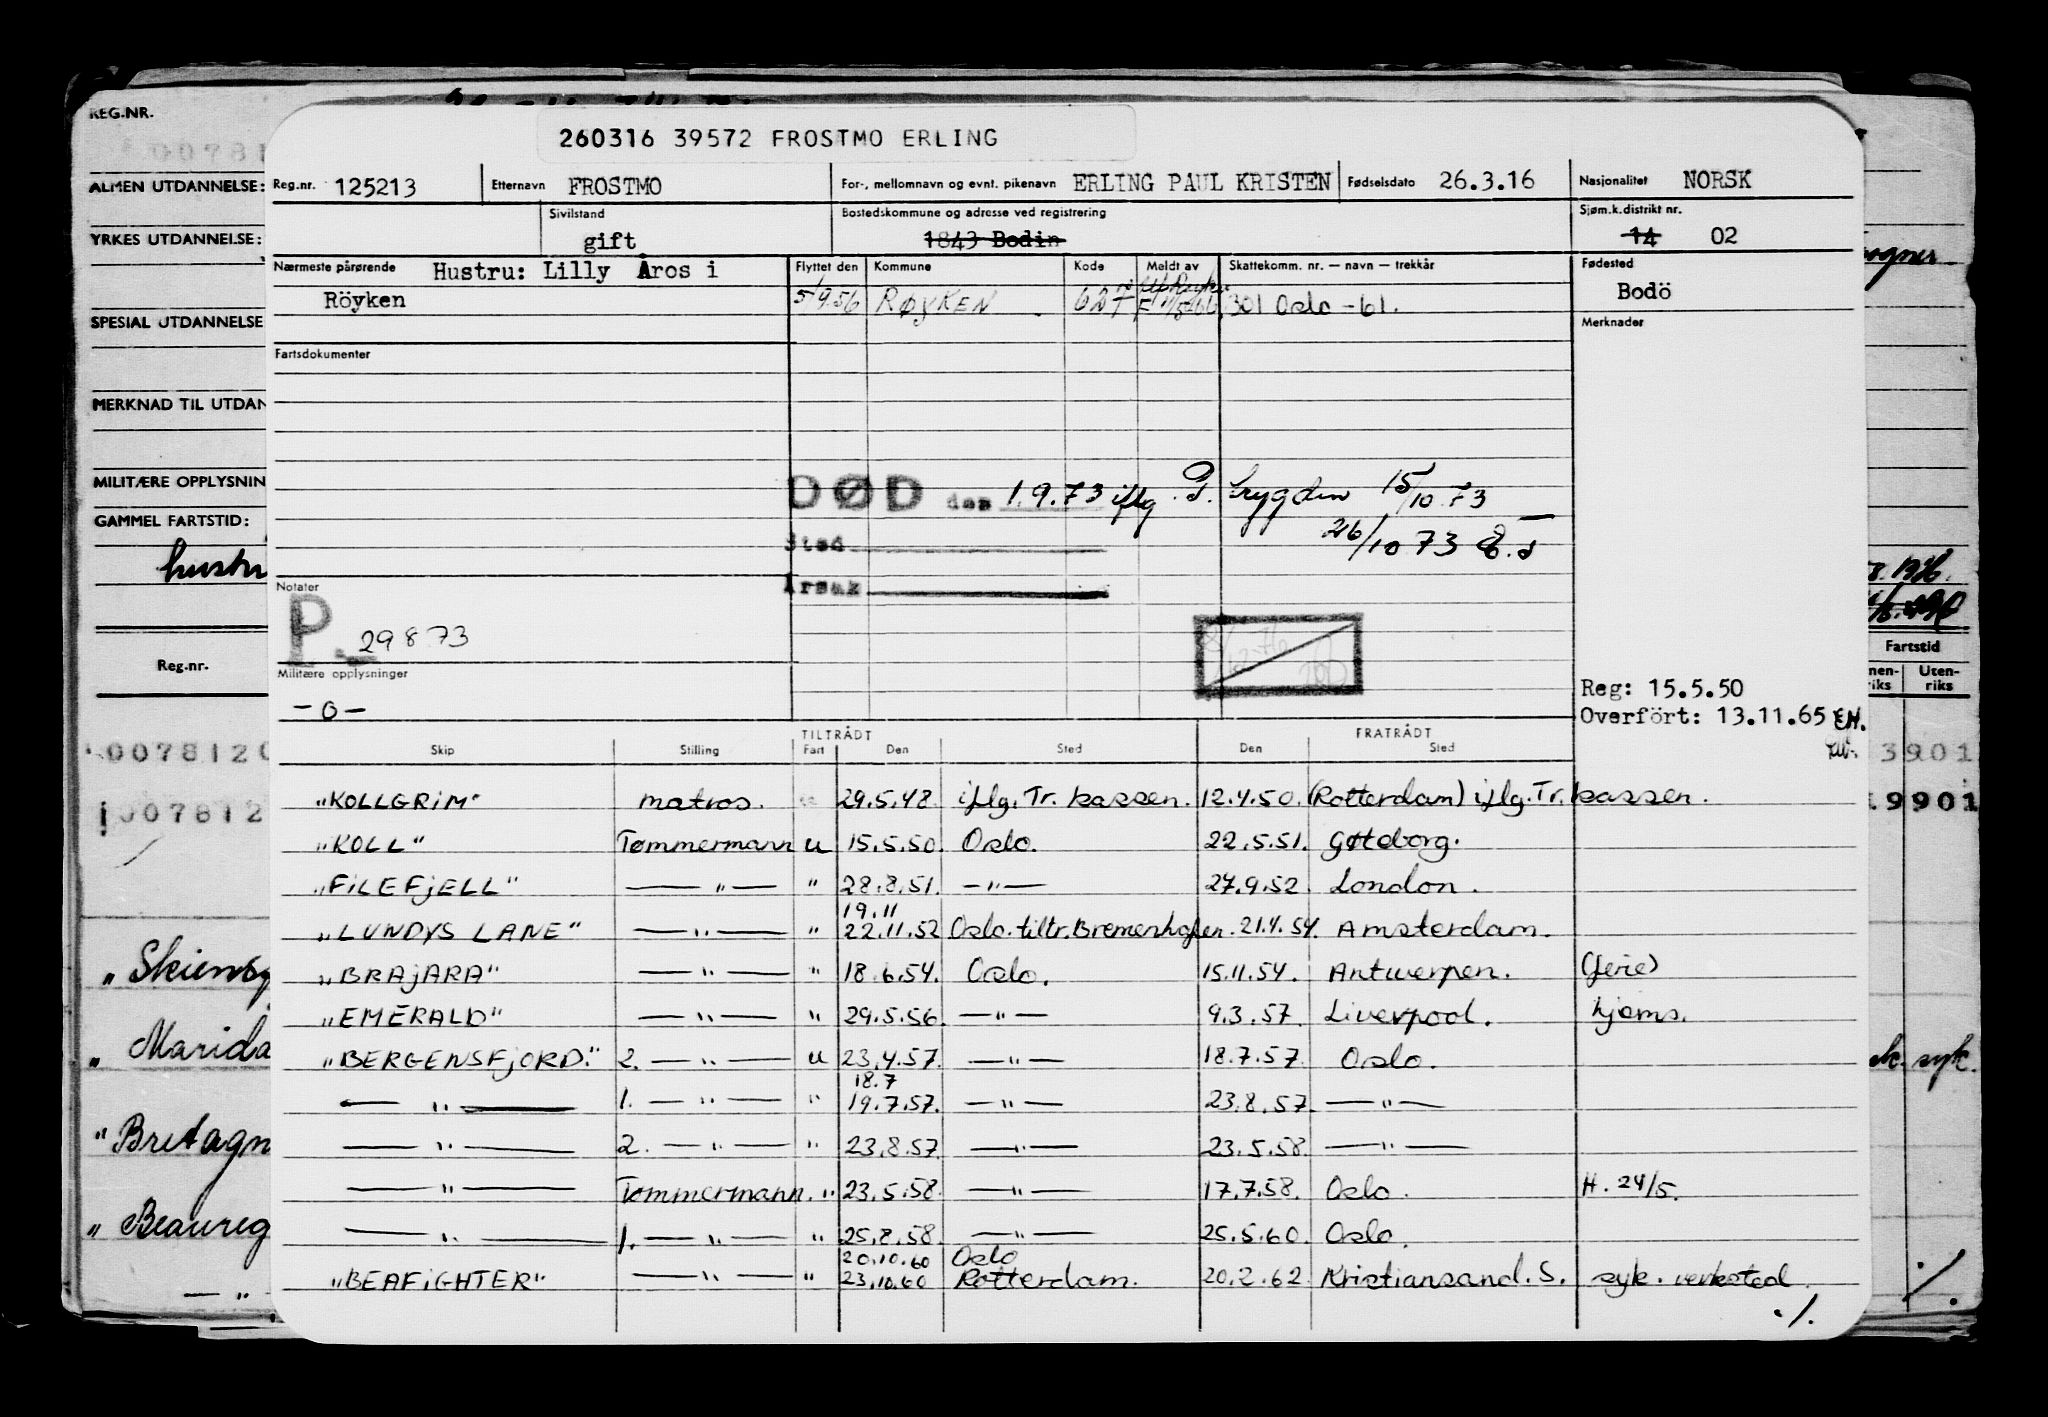 REG.NR.
260316 39572 FROSTMO ERLING
ALMEN UTDANNELSE:
Reg.nr. 125213 Etternavn FROSTMO For-, mellomnavn og evnt. pikenavn ERLING PAUL KRISTEN Fødselsdato 26.3.16 Nasjonalitet NORSK
Sivilstand Bostedskommune og adresse ved registrering Sjøm.k.distrikt nr.
YRKES UTDANNELSE: gift 1843 Bodin 14 02
Nærmeste pårørende Hustru: Lilly Åros i Flyttet den Kommune Kode Meldt av Skattekomm. nr. — navn — trekkår Fødested
Röyken 5/9.56 RØYKEN 627 301 Oslo -61. Bodö
SPESIAL UTDANNELSE Merknader
Fartsdokumenter
MERKNAD TIL UTDAN
MILITÆRE OPPLYSNIN
DØD den 1.9.73 iflg. trygden 15/10 73
GAMMEL FARTSTID:
Sted 26/10 73
hustr
Årsak
Notater
P. 29873
Reg.nr. Fartstid
Uten-
riks
Militære opplysninger
-0-
Reg: 15.5.50
Overfört: 13.11.65 EH.
TILTRÅDT FRATRÅDT
Skip Stilling Fart Den Sted Den Sted
0078120 3901
"KOLLGRIM" matros. 29.5.48. iflg. Tr. kassen. 12.4.50. (Rotterdam) iflg. Tr. kassen.
007812 9901
"KOLL" Tømmermann u 15.5.50. Oslo. 22.5.51. Gøteborg.
"FILEFJELL" — " — " 28.8.51. — " — 27.9.52. London.
19.11
"LUNDYS LANE" — " — " 22.11.52 Oslo. tiltr. Bremenhafen. 21.4.54. Amsterdam.
"Skiensf
"BRAJARA" — " — " 18.6.54. Oslo. 15.11.54. Antwerpen. (ferie)
"EMERALD" — " — " 29.5.56. — " — 9.3.57. Liverpool. hjems.
" Marida
"BERGENSFJORD." 2. — " — u 23.4.57. — " — 18.7.57. Oslo. syk.
18.7
— " — 1. — " — " 19.7.57. — " — 23.8.57. — " —
"Bretagn
— " — 2. — " — " 23.8.57. — " — 23.5.58. — " —
— " — Tømmermann. " 23.5.58. — " — 17.7.58. Oslo. H. 24/5.
" Beaureg
— " — 1. — " — " 25.8.58. — " — 25.5.60. Oslo.
20.10.60 Oslo
"BEAFIGHTER" — " — " 23.10.60 Rotterdam. 20.2.62. Kristiansand. S. syk. verksted.
— " ./.